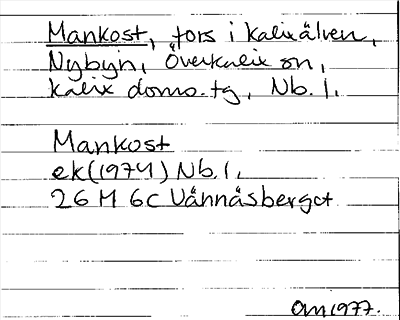 Mankost, fors i Kalixälven,
Nybyn, Överkalix sn,
Kalix doms.tg, Nb. l.
Mankost
ek (1974) Nb. l.
26 M 6c Vännäsberget
OM 1977.